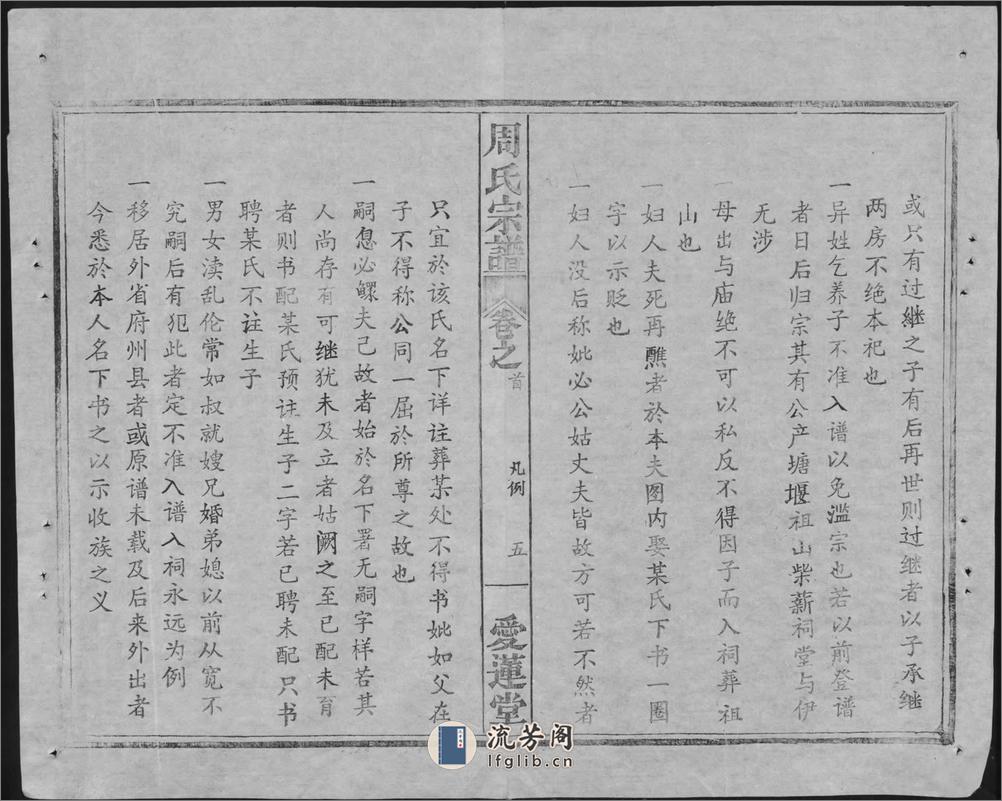 或只有过继之子有后再世则过继者以子承继
两房不绝本祀也
一异姓乞养子不准入谱以免滥宗也若以前登谱
者日后归宗其有公产塘堰祖山柴薪祠堂与伊
无涉
一母出与庙绝不可以私反不得因子而入祠葬祖
山也
一妇人夫死再醮者於本夫图内娶某氏下书一圈
字以示贬也
一妇人没后称妣必公姑丈夫皆故方可若不然者
周氏宗譜
卷之首
凡例
五
愛蓮堂
只宜於该氏名下详注葬某处不得书妣如父在
子不得称公同一屈於所尊之故也
一嗣息必鳏夫己故者始於名下署无嗣字样若其
人尚存有可继犹未及立者姑阙之至已配未育
者则书配某氏预注生子二字若已聘未配只书
聘某氏不注生子
一男女渎乱伦常如叔就嫂兄婚弟媳以前从宽不
究嗣后有犯此者定不准入谱入祠永远为例
一移居外省府州县者或原谱未载及后来外出者
今悉於本人名下书之以示收族之义
流芳阁
lfglib.cn